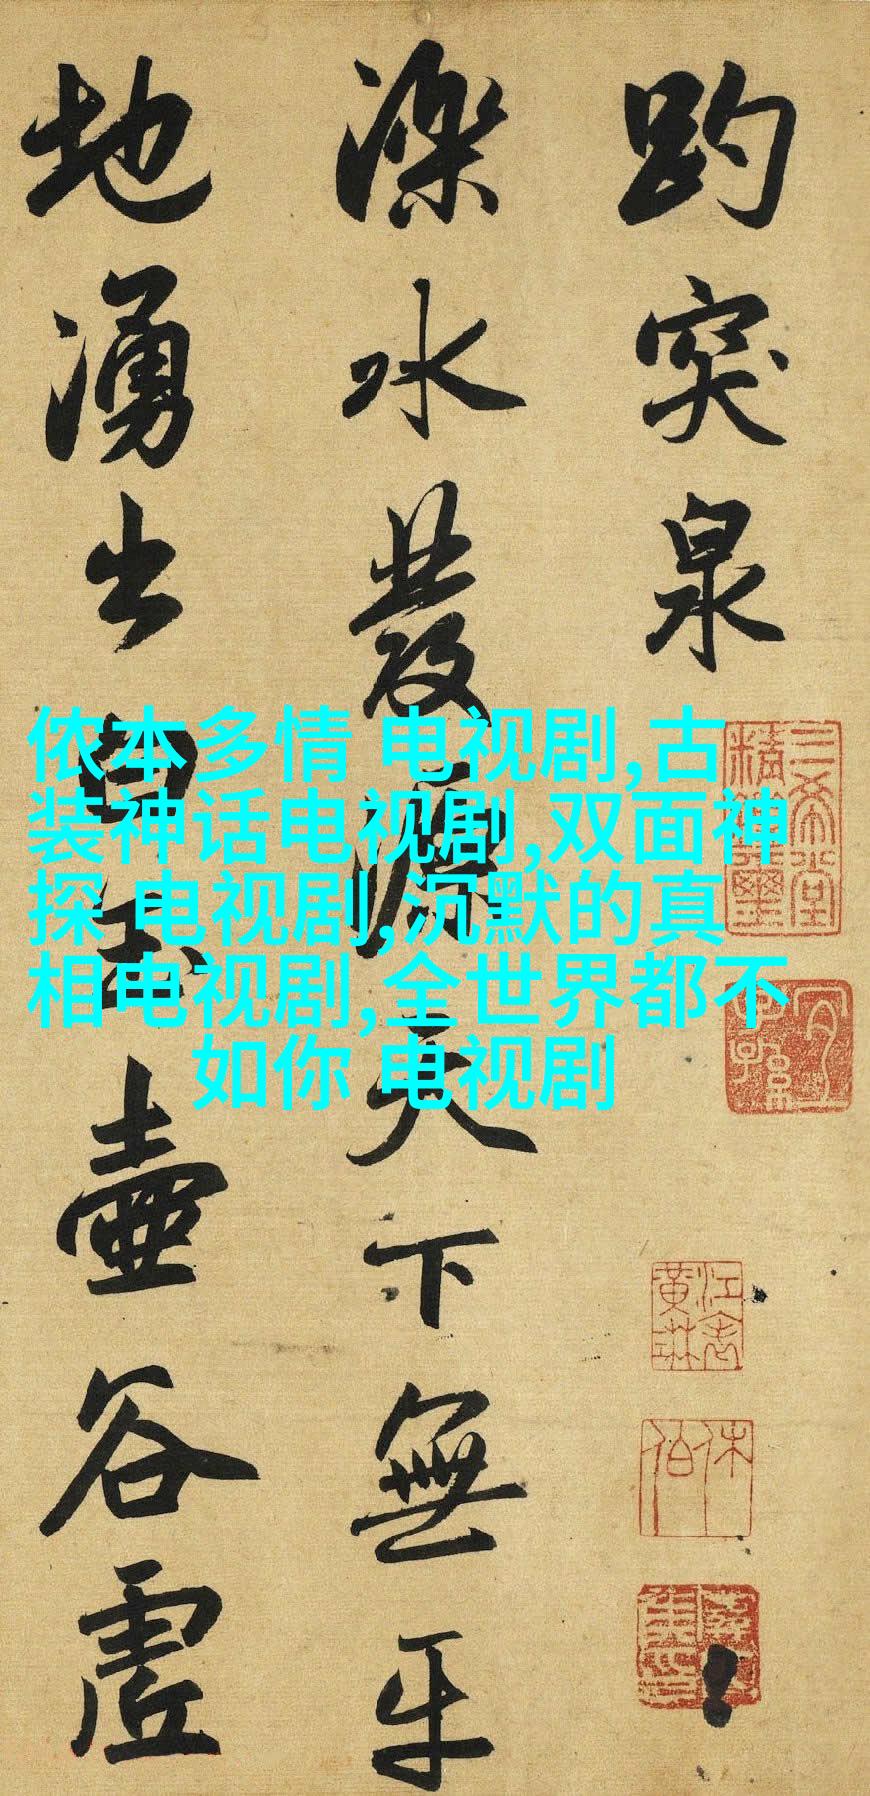 趵突泉
濼水發源天下無平
地湧出白玉壺谷虛
侬本多情 电视剧,古
装神话电视剧,双面神
探 电视剧,沉默的真
相电视剧,全世界都不
如你 电视剧